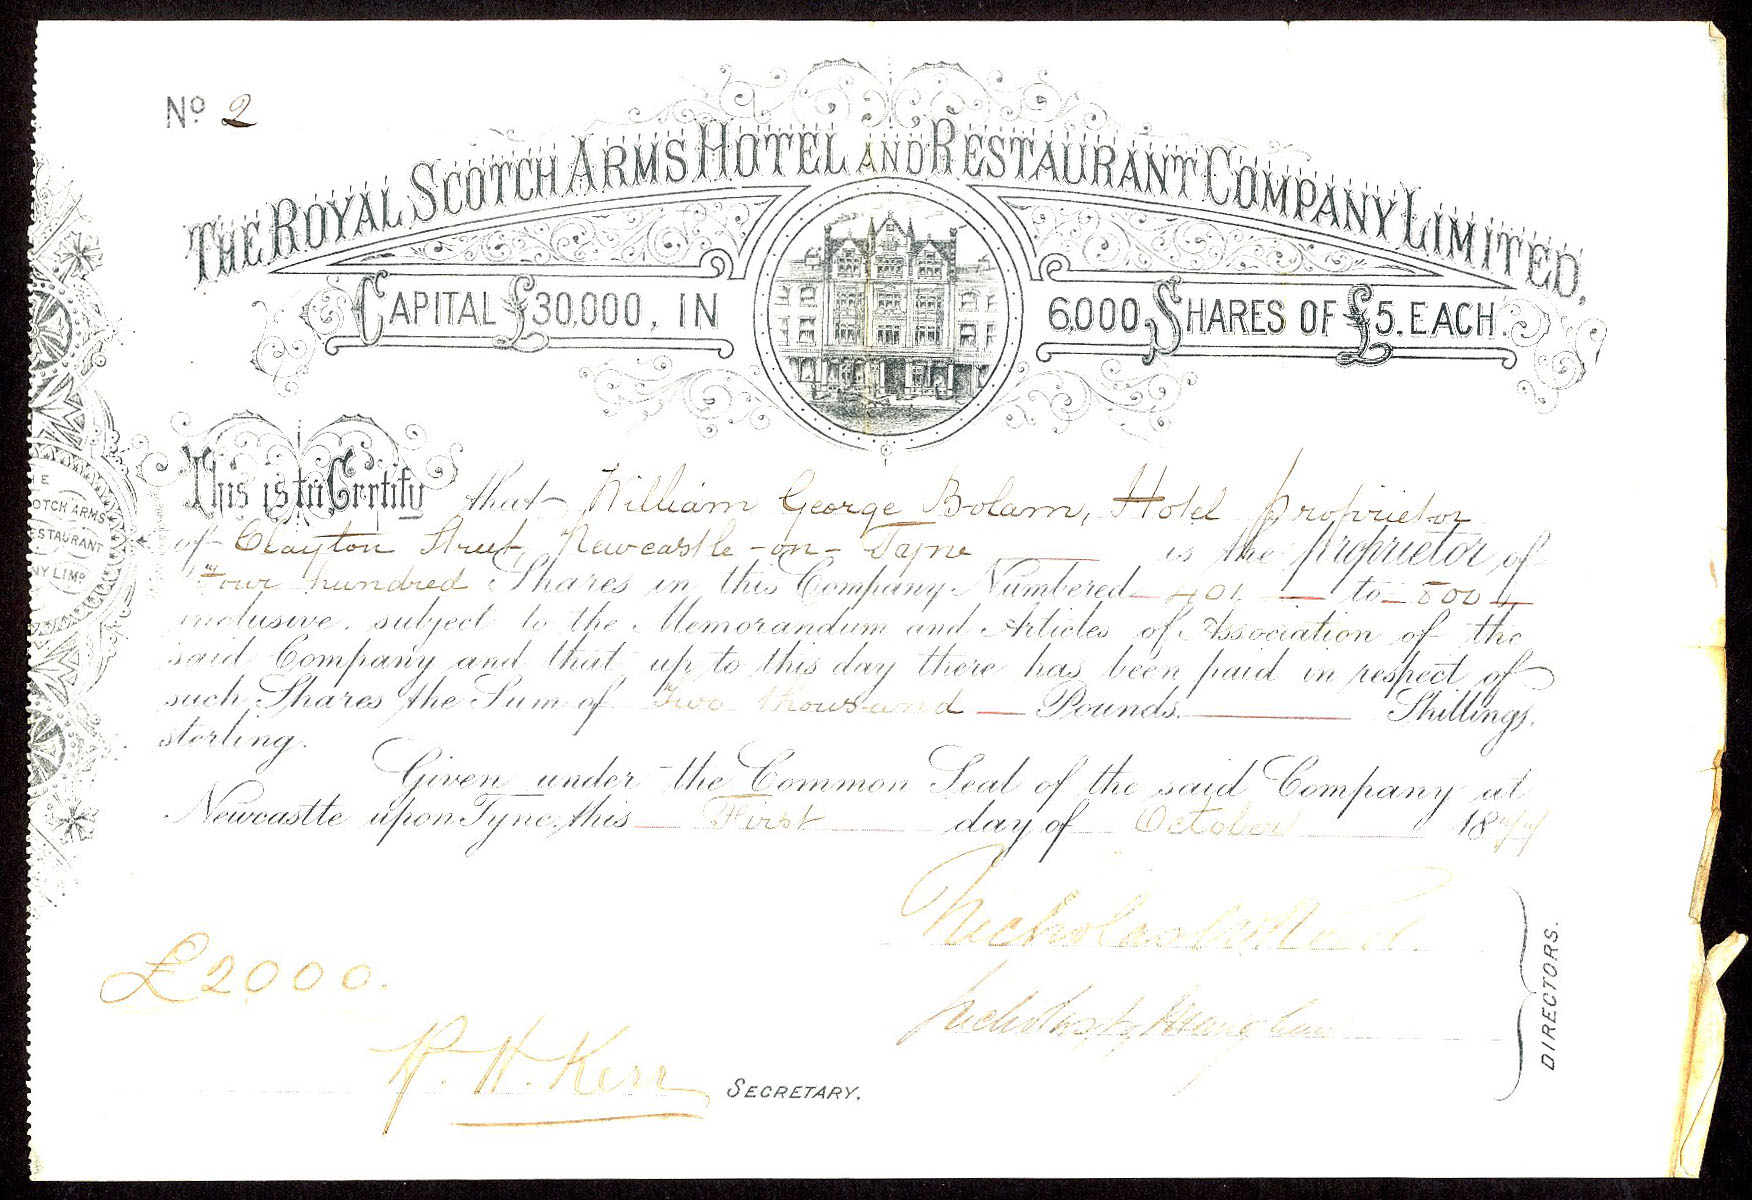 No 2
THE ROYAL SCOTCH ARMS HOTEL AND RESTAURANT COMPANY LIMITED.
CAPITAL £30,000, IN 6,000 SHARES OF £5. EACH.
This is to Certify that William George Bolam, Hotel proprietor
of Clayton Street, Newcastle-on-Tyne is the proprietor of
Four hundred Shares in this Company Numbered 401 to 800
inclusive, subject to the Memorandum and Articles of Association of the
said Company and that up to this day there has been paid in respect of
such Shares the Sum of Two thousand Pounds Shillings
sterling.
Given under the Common Seal of the said Company at
Newcastle upon Tyne, this First day of October 18
£2000.
R. H. Kerr SECRETARY.
Nicholas
DIRECTORS.
E
OTCH ARMS
ESTAURANT
NY LIMD